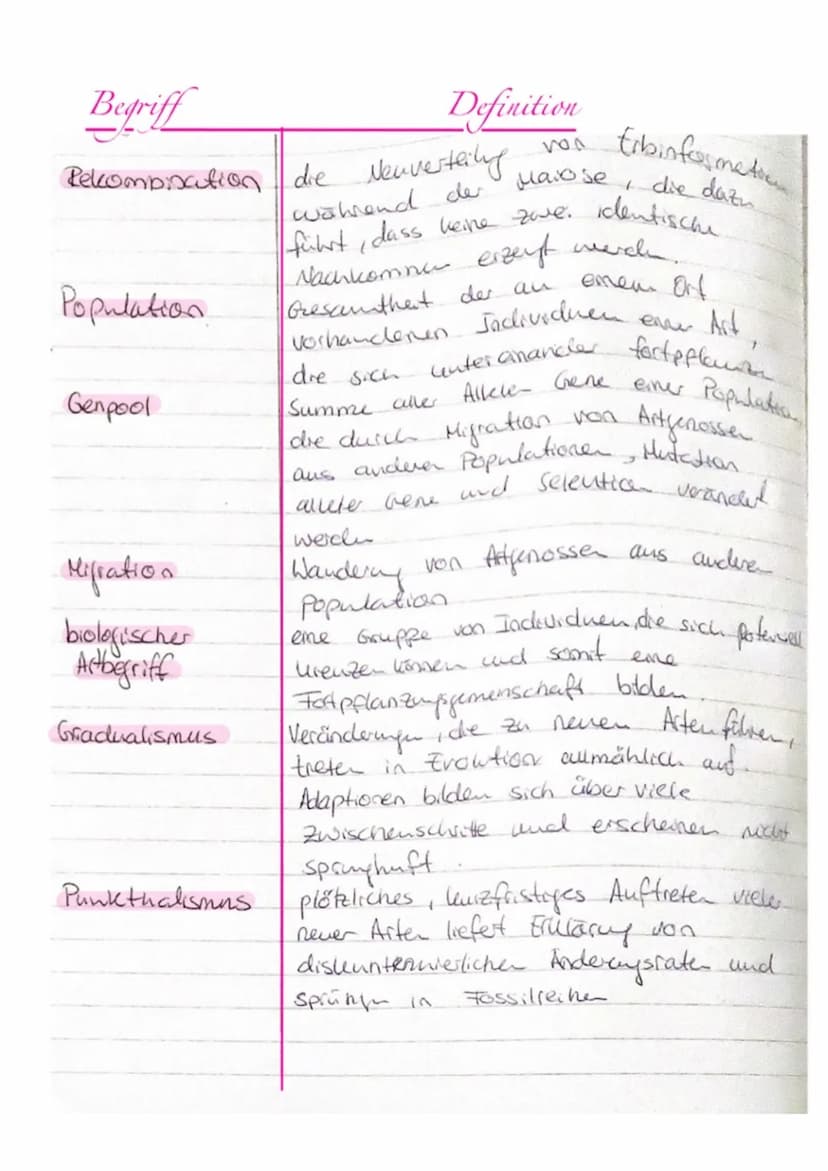 Begriff Definition
Rekombination die Neuverteilung von Erbinformation
während der Maiose, die dazu
führt, dass keine zwei identische
Nachkommen erzeugt werden.
Population Gesamtheit der an einem Ort
vorhandenen Individuen einer Art,
die sich untereinander fortpflanzen
Genpool Summe aller Allelen Gene einer Population,
die durch Migration von Artgenossen
aus anderen Populationen, Mutation
alleler Gene und Selektion verändert
werden
Migration Wanderung von Artgenossen aus anderen
Population
biologischer eine Gruppe von Individuen, die sich potenziell
Artbegriff kreuzen können und somit eine
Fortpflanzungsgemeinschaft bilden.
Gradualismus Veränderungen, die zu neuen Arten führen,
treten in Evolution allmählich auf.
Adaptionen bilden sich über viele
Zwischenschritte und erscheinen nicht
sprunghaft.
Punkthalismus plötzliches, kurzfristiges Auftreten vieler
neuer Arten liefert Erklärung von
diskuntenuierlichen Änderungsraten und
sprüngen in Fossilreihen